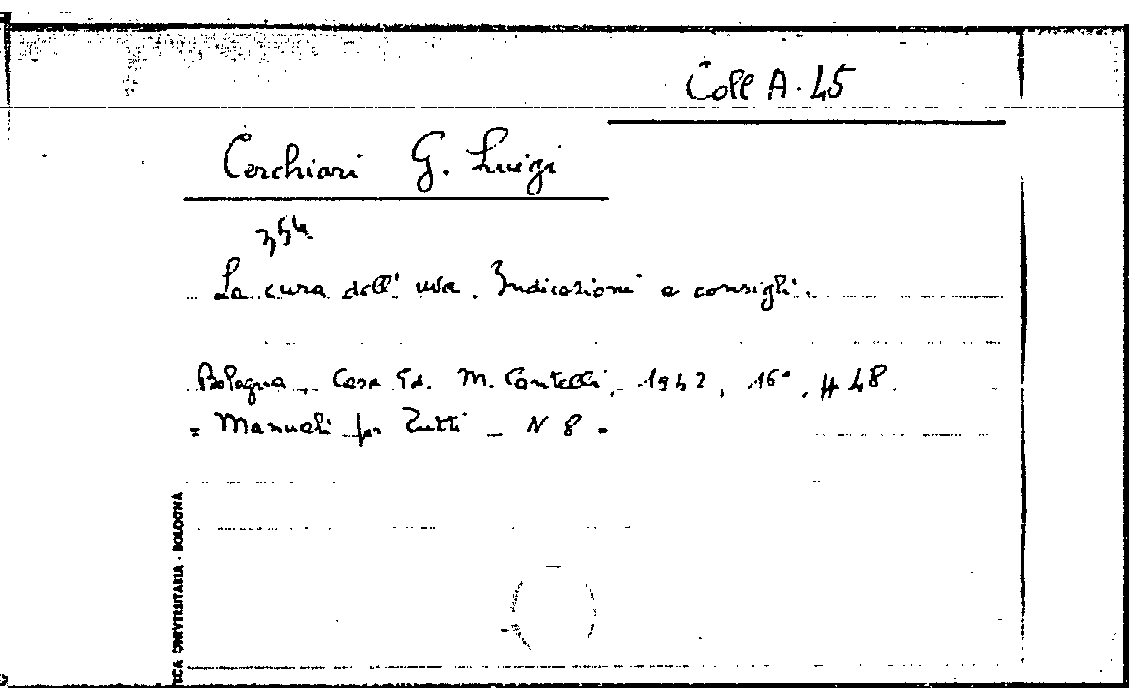 Coll A. 45
Cerchiari G. Luigi
354
La cura dell' uva. Indicazioni e consigli.
Bologna, Casa Ed. M. Cantelli, 1942, 16°, 48.
= Manuali per Tutti - N 8 =
UNIVERSITARIA - BOLOGNA